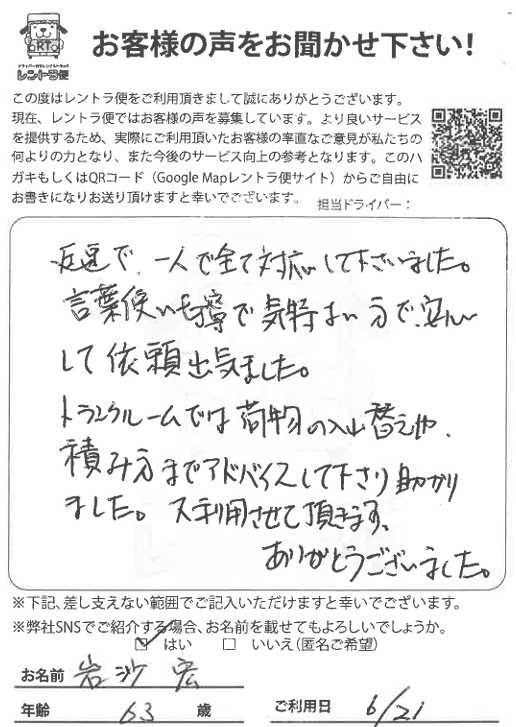 RT
ドライバー付きレンタルトラック
レントラ便
お客様の声をお聞かせ下さい!
この度はレントラ便をご利用頂きまして誠にありがとうございます。
現在、レントラ便ではお客様の声を募集しています。より良いサービス
を提供するため、実際にご利用頂いたお客様の率直なご意見が私たちの
何よりの力となり、また今後のサービス向上の参考となります。このハ
ガキもしくはQRコード（Google Mapレントラ便サイト）からご自由に
お書きになりお送り頂けますと幸いでございます。
担当ドライバー：
迅速で、一人で全て対応して下さいました。
言葉使いも丁寧で気持よい方で、安心
して依頼出来ました。
トランクルームでは荷物の入れ替えや、
積み方までアドバイスして下さり助かり
ました。又利用させて頂きます、
ありがとうございました。
※下記、差し支えない範囲でご記入いただけますと幸いでございます。
※弊社SNSでご紹介する場合、お名前を載せてもよろしいでしょうか。
☑ はい □ いいえ(匿名ご希望)
お名前 岩沙 宏
年齢 63 歳 ご利用日 6/21